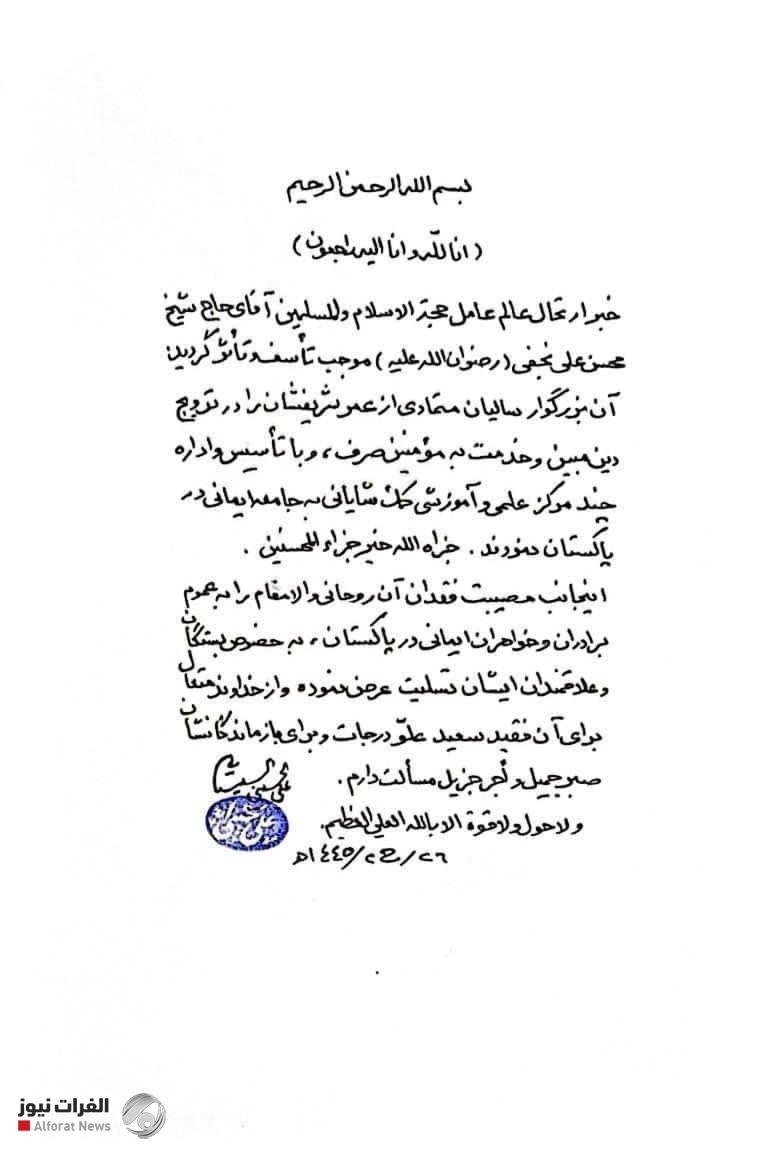 بسم الله الرحمن الرحیم
(انا لله و انا الیه راجعون)
خبر ارتحال عالم عامل حجة الاسلام والمسلمین آقای حاج شیخ
محسن علی نجفی (رضوان الله علیه) موجب تأسف و تأثر گردید.
آن بزرگوار سالیان متمادی از عمر شریفشان را در ترویج
دین مبین وخدمت به مؤمنین صرف، و با تأسیس واداره
چند مرکز علمی و آموزشی کمک شایانی به جامعه ایمانی در
پاکستان نمودند. جزاه الله خیر جزاء المحسنین.
اینجانب مصیبت فقدان آن روحانی والامقام را به عموم
برادران وخواهران ایمانی در پاکستان، به خصوص بستگان
وعلاقمندان ایشان تسلیت عرض نموده و از خداوند متعال
برای آن فقید سعید علوّ درجات و برای بازماندگانشان
صبر جمیل و أجر جزیل مسألت دارم.
ولاحول ولاقوة الا بالله العلی العظیم.
علی الحسینی السیستانی
٢٦/ج٢/١٤٤٥هـ
الفرات نيوز
Alforat News